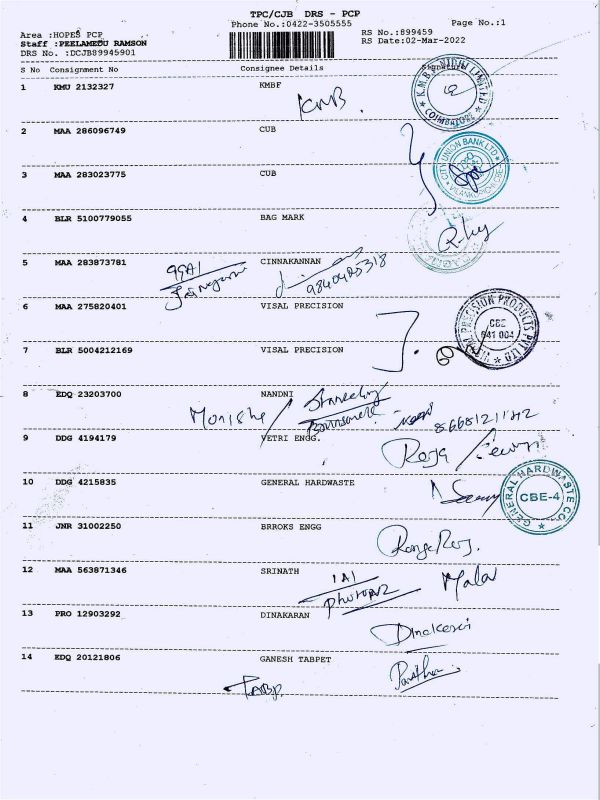 TPC/CJB DRS - PCP
Phone No.:0422-3505555 Page No.:1
Area :HOPES PCP RS No.:899459
Staff :PEELAMEDU RAMSON RS Date:02-Mar-2022
DRS No. :DCJB89945901
S No Consignment No Consignee Details Signature
1 KMU 2132327 KMBF
KMB. K.M.B. NIDHI LIMITED COIMBATORE
2 MAA 286096749 CUB
3 MAA 283023775 CUB CITY UNION BANK LTD
4 BLR 5100779055 BAG MARK
5 MAA 283873781 CINNAKANNAN
6 MAA 275820401 VISAL PRECISION PRECISION PRODUCTS PVT LTD CBE 641 004
7 BLR 5004212169 VISAL PRECISION
8 EDQ 23203700 NANDNI
9 DDG 4194179 VETRI ENGG.
Roja
10 DDG 4215835 GENERAL HARDWASTE GENERAL HARDWASTE CO. CBE-4
11 JNR 31002250 BRROKS ENGG
12 MAA 563871346 SRINATH
Mala
13 PRO 12903292 DINAKARAN
14 EDQ 20121806 GANESH TABPET